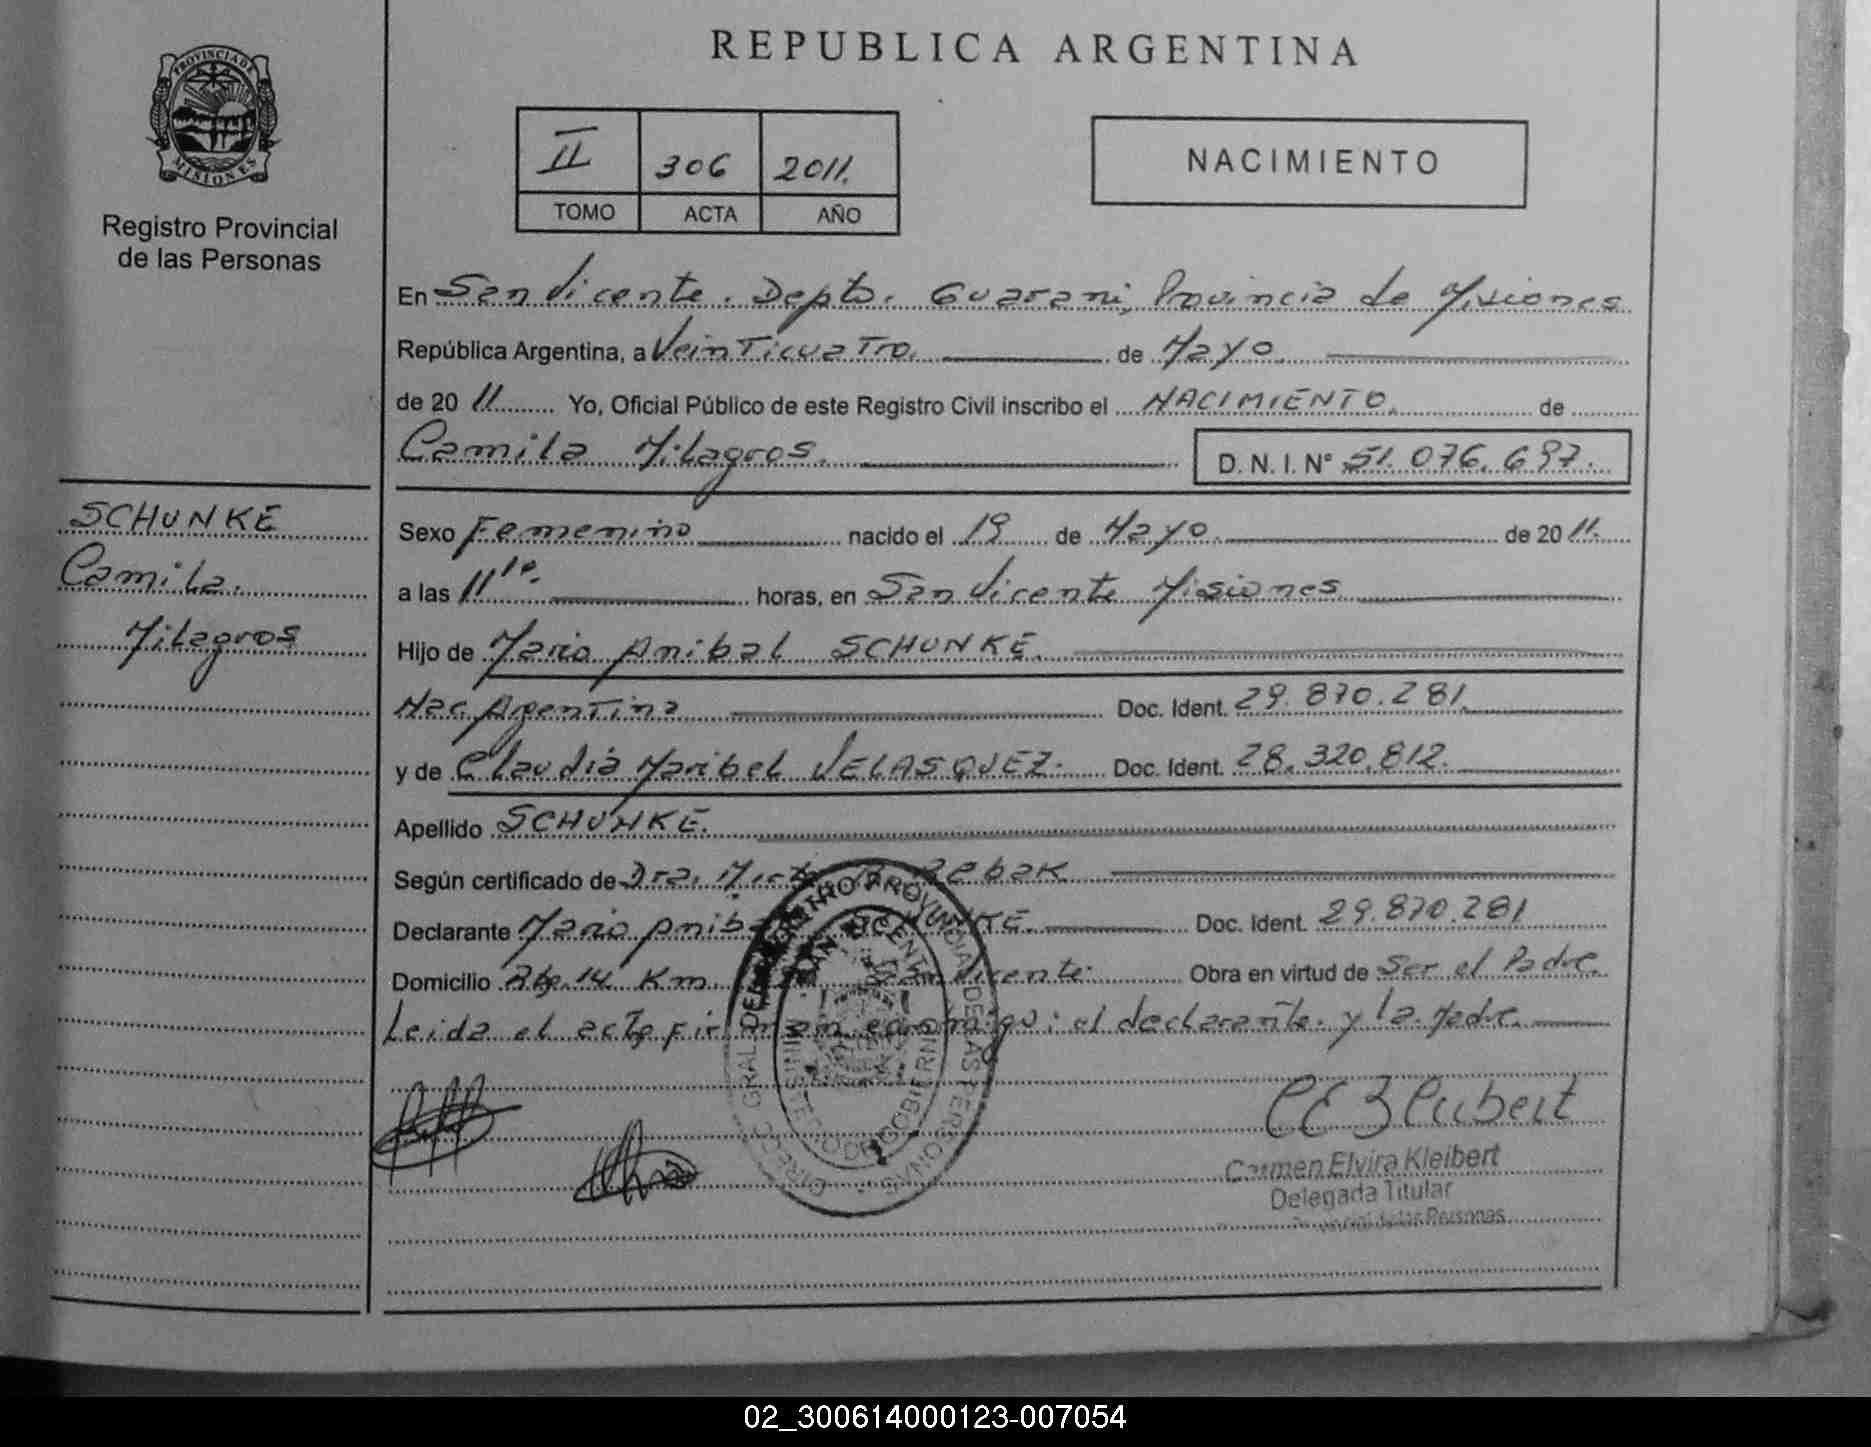 PROVINCIA DE
MISIONES
Registro Provincial
de las Personas
REPUBLICA ARGENTINA
II 306 2011.
TOMO ACTA AÑO
NACIMIENTO
En San Vicente. Depto. Guarani, Provincia de Misiones
República Argentina, a Veinticuatro. de Mayo.
de 20 11 Yo, Oficial Público de este Registro Civil inscribo el NACIMIENTO. de
Camila Milagros.
D. N. I. Nº 51.076.697.
SCHUNKE
Camila.
Milagros
Sexo Femenino nacido el 19 de Mayo. de 20 11.
a las 11 10. horas, en San Vicente Misiones
Hijo de Mario Anibal SCHUNKE.
Nac. Argentina Doc. Ident. 29.870.281.
y de Claudia Maribel VELASQUEZ. Doc. Ident. 28.320.812.
Apellido SCHUNKE.
Según certificado de Dra. Rebak
Declarante Mario Anibal SCHUNKE. Doc. Ident. 29.870.281
Domicilio 14 Km. Vicente. Obra en virtud de Ser el Padre.
Leida el acta firman conmigo: el declarante. y la Madre.
DIREC. GRAL. DEL REGISTRO PROVINCIAL DE LAS PERSONAS
SAN VICENTE
MINISTERIO DE GOBIERNO
Carmen Elvira Kleibert
Delegada Titular
Provincial de las Personas
02_300614000123-007054